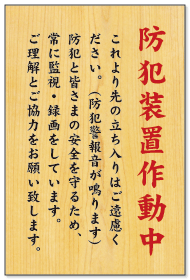 防犯装置作動中
これより先の立ち入りはご遠慮く
ださい。(防犯警報音が鳴ります)
防犯と皆さまの安全を守るため、
常に監視・録画をしています。
ご理解とご協力をお願い致します。